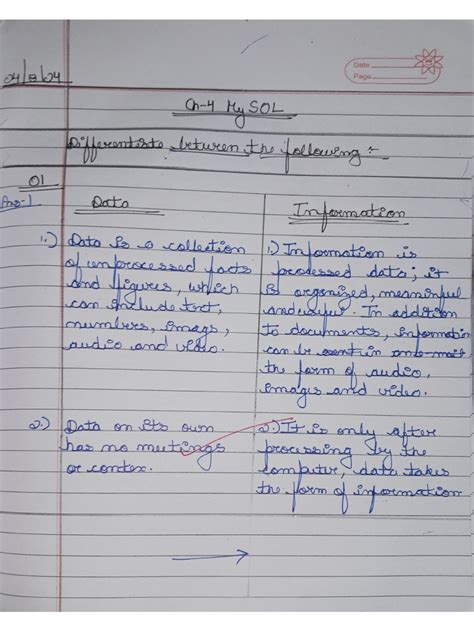 Date
Page
04/8/24
Ch-4 My SQL
Differentiate between the following :-
Q1
Ans-1 Data Information
1.) Data is a collection
of unprocessed facts
and figures, which
can include text,
numbers, images,
audio and video.
1.) Information is
processed data; it
is organized, meaninful
and useful. In addition
to documents, information
can be sent in
the form of audio,
images and video.
2.) Data on its own
has no meetings
or contex.
2.) It is only after
processing by the
computer, data takes
the form of information